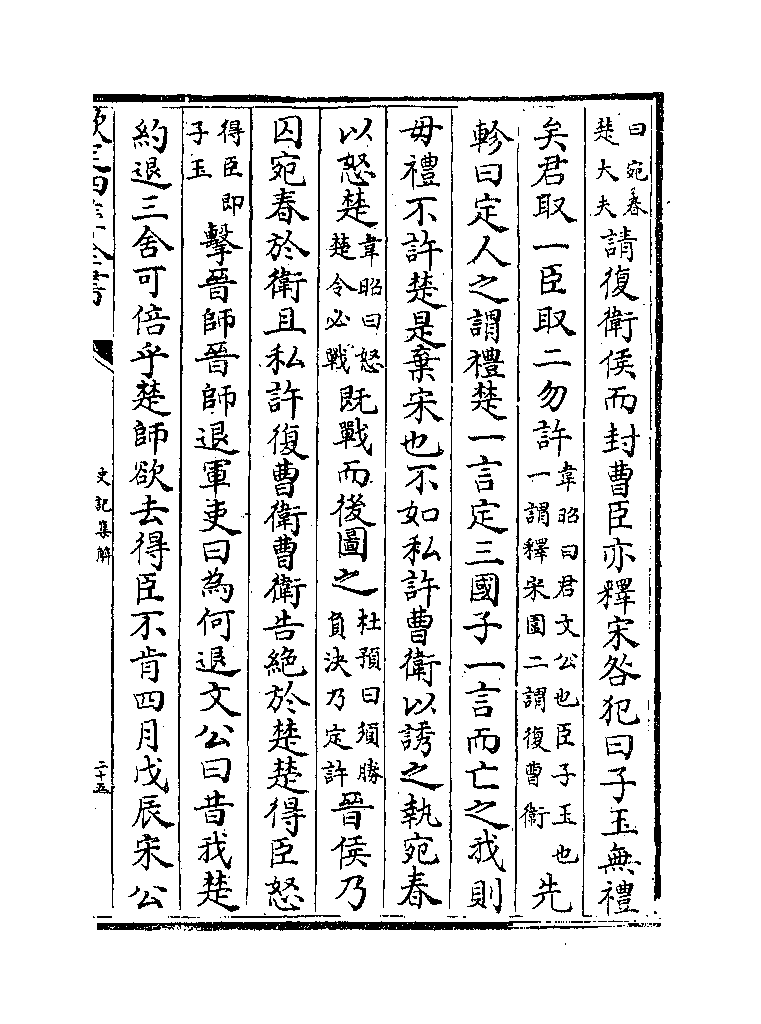 曰宛春楚大夫請復衛侯而封曹臣亦釋宋咎犯曰子玉無禮
矣君取一臣取二勿許韋昭曰君文公也臣子玉也一謂釋宋圍二謂復曹衛先
軫曰定人之謂禮楚一言定三國子一言而亡之我則
毋禮不許楚是棄宋也不如私許曹衛以誘之執宛春
以怒楚韋昭曰怒楚令必戰既戰而後圖之杜預曰須勝負決乃定許晉侯乃
囚宛春於衛且私許復曹衛曹衛告絶於楚楚得臣怒
得臣即子玉擊晉師晉師退軍吏曰為何退文公曰昔我楚
約退三舍可倍乎楚師欲去得臣不肯四月戊辰宋公
欽定四庫全書
史記集解
二十五